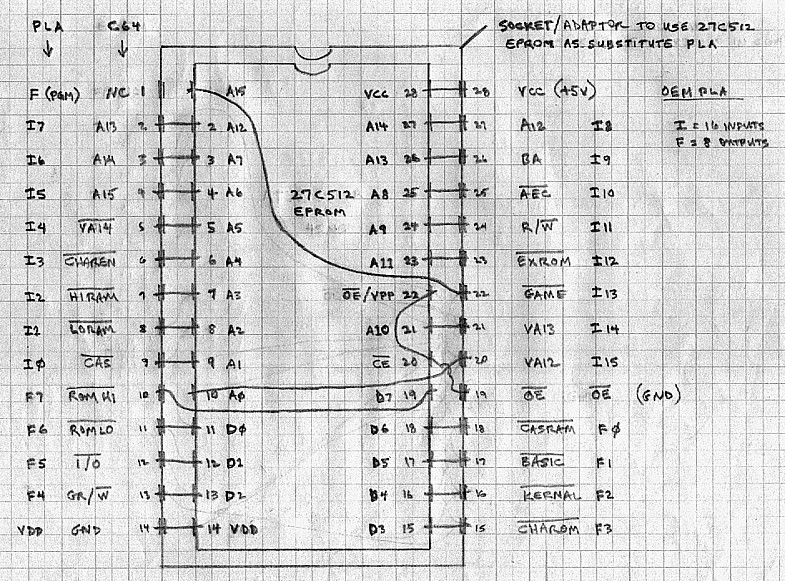 PLA C64 SOCKET/ADAPTOR TO USE 27C512
EPROM AS SUBSTITUTE PLA
F (PGM) NC 1 A15 VCC 28 28 VCC (+5V) OEM PLA
I7 A13 2 2 A12 A14 27 27 A12 I8 I = 16 INPUTS
F = 8 OUTPUTS
I6 A14 3 3 A7 A13 26 26 BA I9
I5 A15 4 4 A6 27C512 A8 25 25 AEC I10
EPROM
I4 VA14 5 5 A5 A9 24 24 R/W I11
I3 CHAREN 6 6 A4 A11 23 23 EXROM I12
I2 HIRAM 7 7 A3 OE/VPP 22 22 GAME I13
I1 LORAM 8 8 A2 A10 21 21 VA13 I14
I0 CAS 9 9 A1 CE 20 20 VA12 I15
F7 ROMHI 10 10 A0 D7 19 19 OE OE (GND)
F6 ROMLO 11 11 D0 D6 18 18 CASRAM F0
F5 I/O 12 12 D1 D5 17 17 BASIC F1
F4 GR/W 13 13 D2 D4 16 16 KERNAL F2
VDD GND 14 14 VDD D3 15 15 CHAROM F3